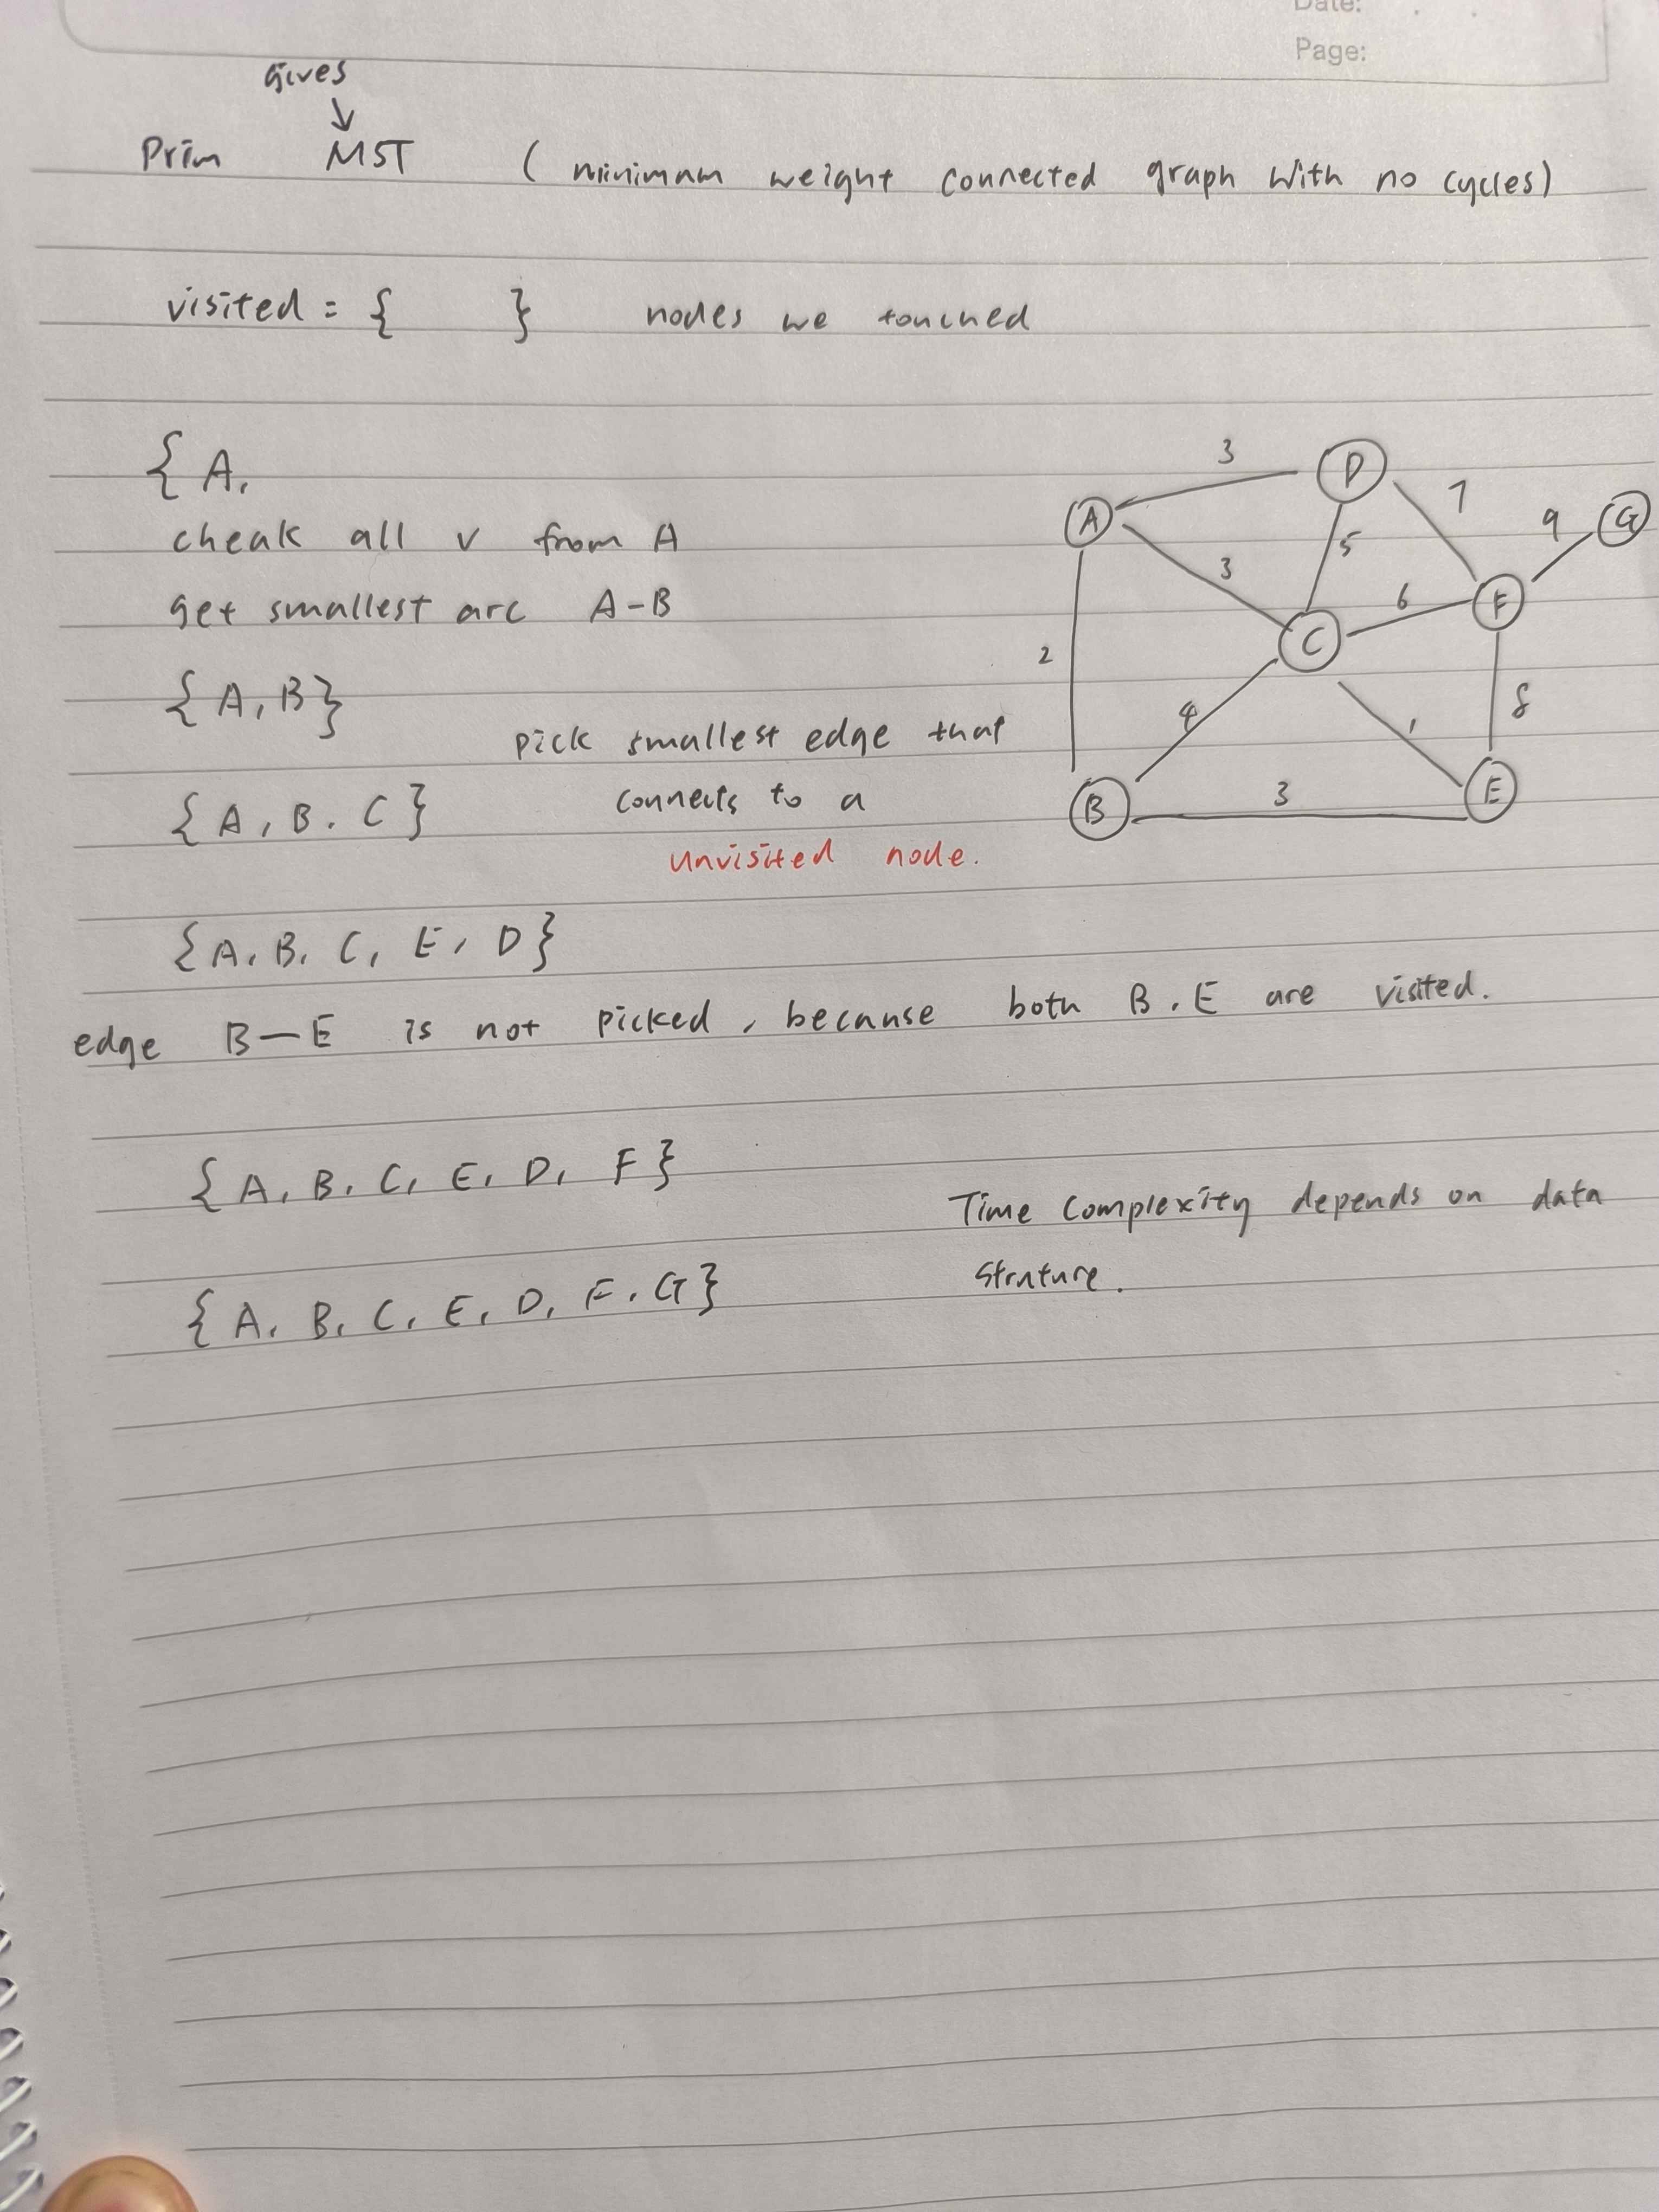 Date:
Page:
gives
↓
Prim MST ( minimum weight connected graph with no cycles)
visited = { } nodes we touched
{ A,
cheak all v from A
get smallest arc A-B
{ A, B }
pick smallest edge that
connects to a
unvisited node.
{ A, B. C }
{ A, B, C, E, D }
edge B—E is not picked, because both B, E are visited.
{ A, B, C, E, D, F }
{ A, B, C, E, D, F, G }
Time complexity depends on data
struture.
3
D
7
A
9
G
5
3
6
F
C
2
4
1
8
B
3
E